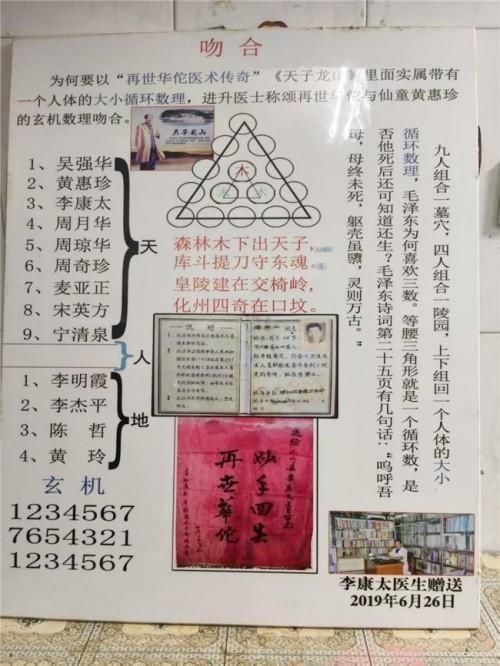 吻合
为何要以“再世华佗医术传奇”《天子龙山》里面实属带有
一个人体的大小循环数理，进升医士称颂再世华佗与仙童黄惠珍
的玄机数理吻合。
天子龙山
1、吴强华
2、黄惠珍
3、李康太
4、周月华
5、周琼华
6、周奇珍
7、麦亚正
8、宋英方
9、宁清泉
天
人
1、李明霞
2、李杰平
3、陈 哲
4、黄 玲
地
玄机
1234567
7654321
1234567
木
木
木
森林木下出天子，
库斗提刀守东魂。
皇陵建在交椅岭，
化州四奇在口坟。
九人组合一墓穴，四人组合一陵园，上下组回一个人体的大小
循环数理，毛泽东为何喜欢三数。等腰三角形就是一个循环数，是
否他死后还可知道还生？毛泽东诗词第二十五页有几句话：“呜呼吾
母，母终未死，躯壳虽隳，灵则万古。”
说明
妙手回生
再世华佗
李康太医生赠送
2019年6月26日